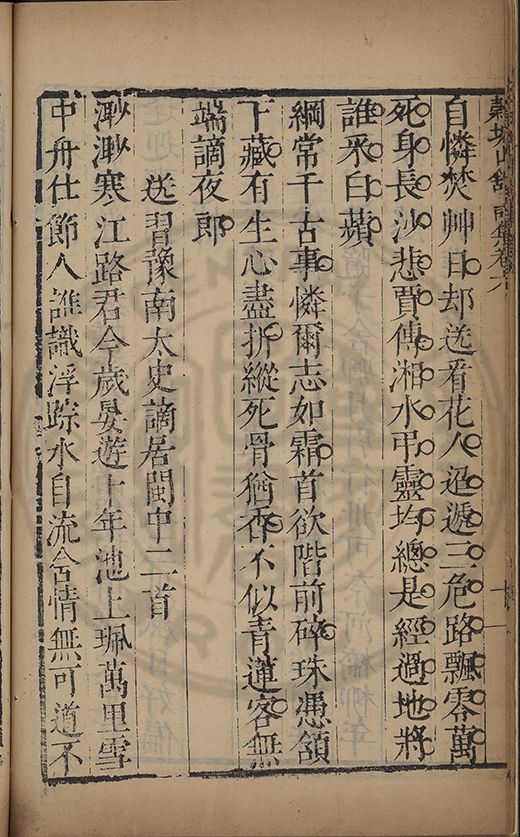 集卷六
十一
自憐焚艸日却送看花人迢遞三危路飄零萬
死身長沙悲賈傅湘水弔靈均總是經過地將
誰采白蘋
綱常千古事憐爾志如霜首欲階前碎珠憑頷
下藏有生心盡折縱死骨猶香不似青蓮客無
端謫夜郎
送習豫南太史謫居閩中二首
渺渺寒江路君今歲晏遊十年池上珮萬里雪
中舟仕節人誰識浮踪水自流含情無可道不